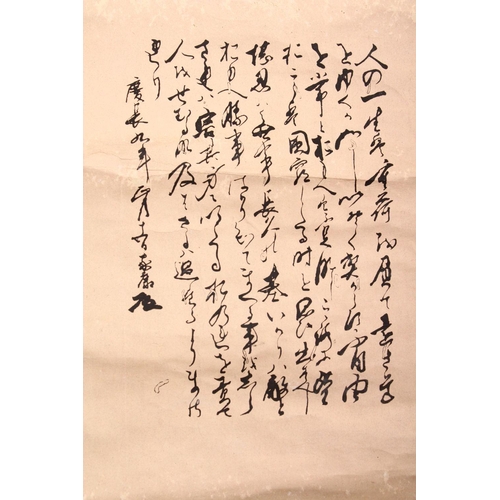 人の一生は重荷を負て遠き道
をゆくが如しいそぐべからず不自由
を常とおもへば不足なしこころに望
おこらば困窮したる時を思ひ出すべし
堪忍は無事長久の基いかりは敵と
おもへ勝事ばかり知てまくる事をしら
ざれば害其身にいたるおのれを責て
人をせむるな及ばざるは過たるよりまさ
れり
慶長九年 家康